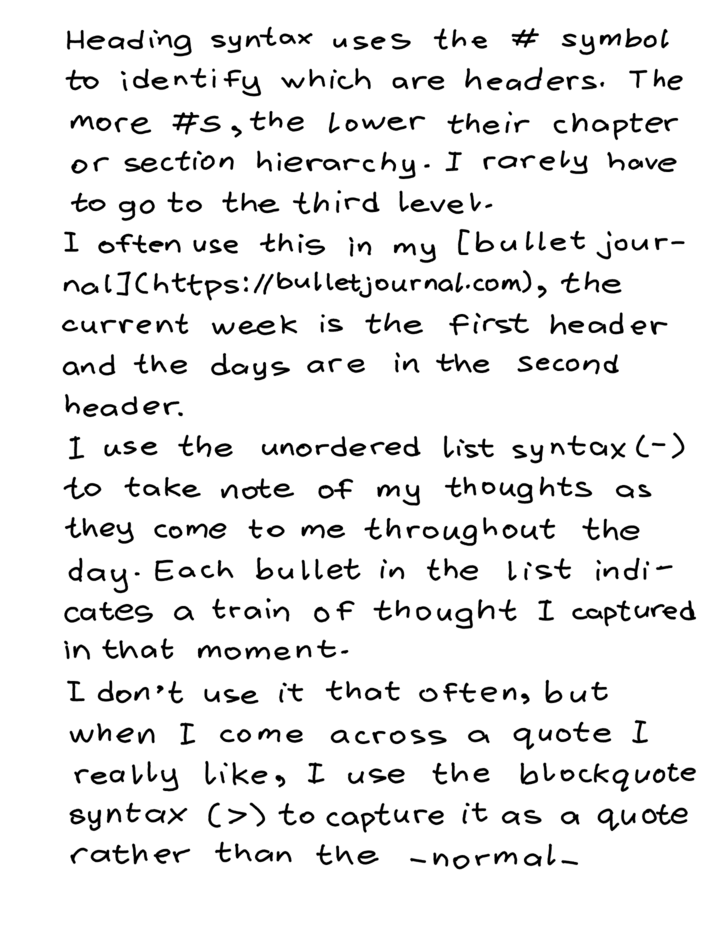 Heading syntax uses the # symbol
to identify which are headers. The
more #s, the lower their chapter
or section hierarchy. I rarely have
to go to the third level.
I often use this in my [bullet jour-
nal](https://bulletjournal.com), the
current week is the first header
and the days are in the second
header.
I use the unordered list syntax (-)
to take note of my thoughts as
they come to me throughout the
day. Each bullet in the list indi-
cates a train of thought I captured
in that moment.
I don't use it that often, but
when I come across a quote I
really like, I use the blockquote
syntax (>) to capture it as a quote
rather than the _normal_